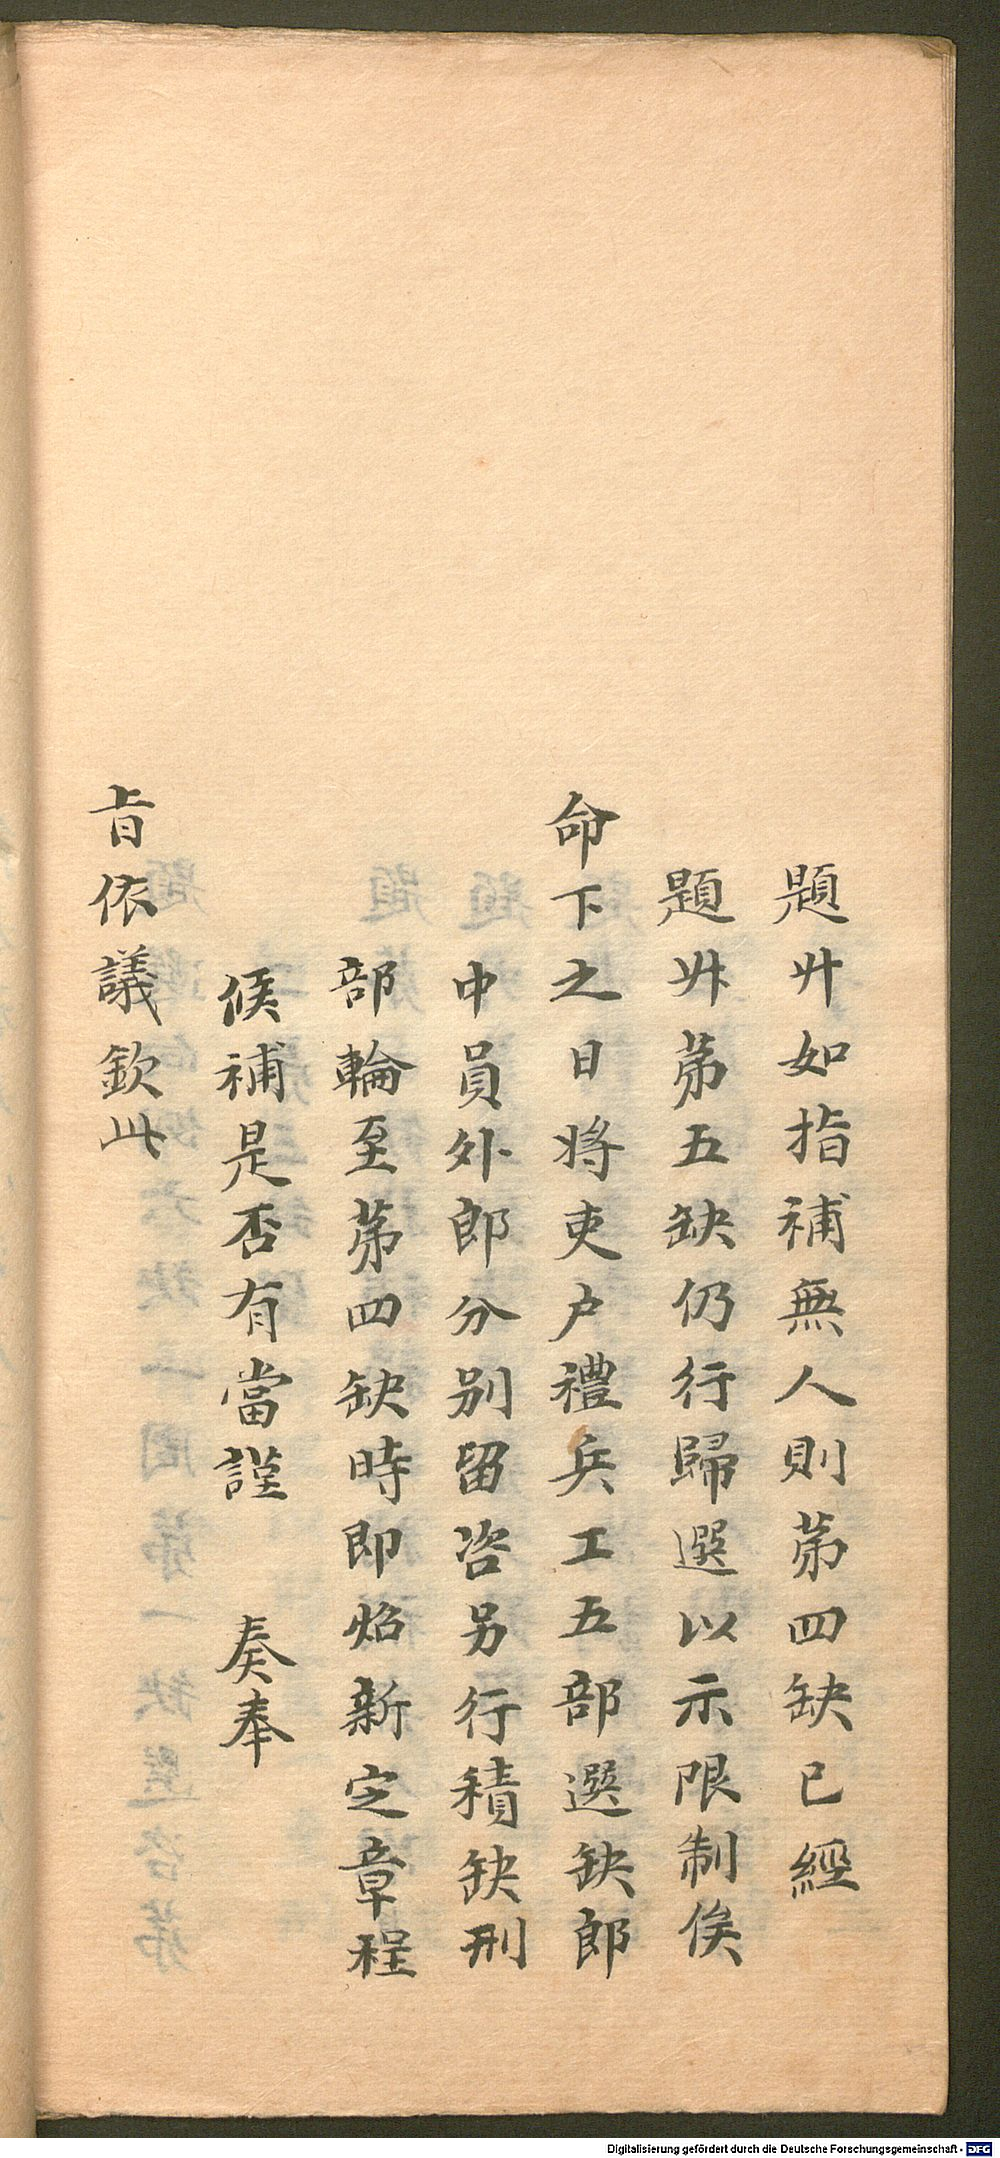 題升如指補無人則第四缺已經
題升第五缺仍行歸選以示限制俟
命下之日將吏戶禮兵工五部選缺郎
中員外郎分別留咨另行積缺刑
部輪至第四缺時即炤新定章程
候補是否有當謹 奏奉
旨依議欽此
Digitalisierung gefördert durch die Deutsche Forschungsgemeinschaft - DFG